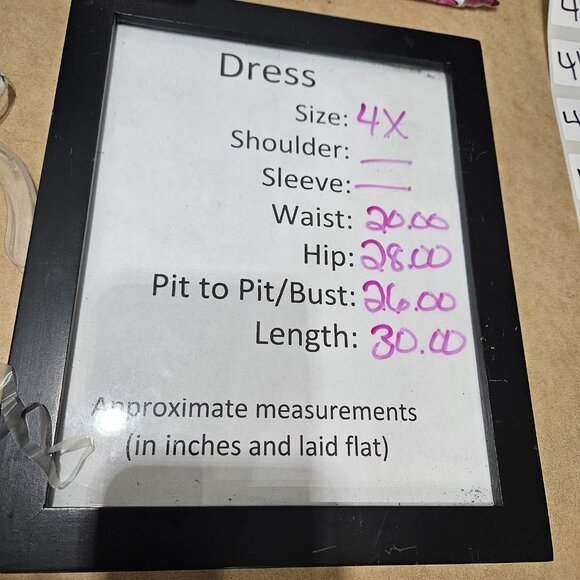 Dress
Size: 4X
Shoulder: __
Sleeve: __
Waist: 20.00
Hip: 28.00
Pit to Pit/Bust: 26.00
Length: 30.00
Approximate measurements
(in inches and laid flat)